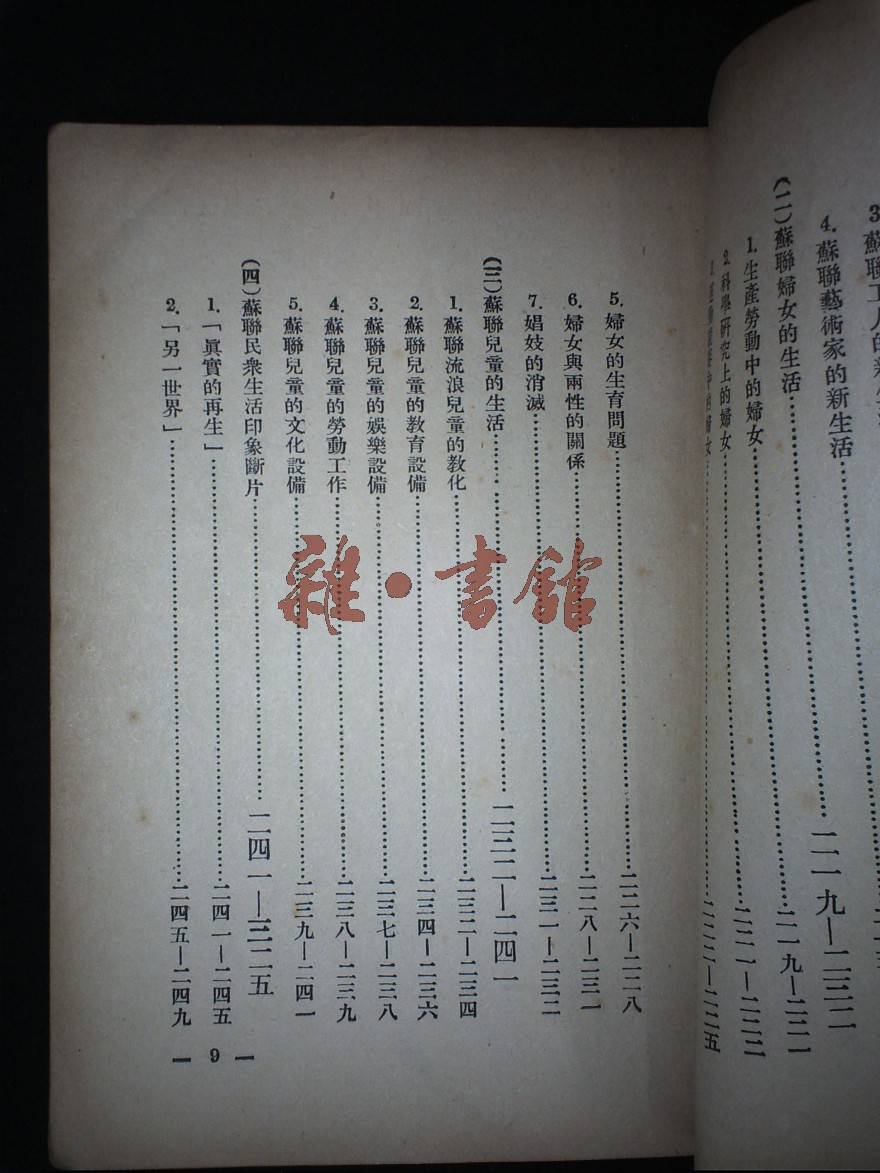 4. 蘇聯藝術家的新生活
(二)蘇聯婦女的生活……二一九—二三二
1. 生產勞動中的婦女……二一九—二二一
2. 科學研究上的婦女……二二一—二二二
二二二—二二五
5. 婦女的生育問題……二二六—二二八
6. 婦女與兩性的關係……二二八—二三一
7. 娼妓的消滅……二三一—二三二
(三)蘇聯兒童的生活……二三二—二四一
1. 蘇聯流浪兒童的教化……二三二—二三四
2. 蘇聯兒童的教育設備……二三四—二三六
3. 蘇聯兒童的娛樂設備……二三七—二三八
4. 蘇聯兒童的勞動工作……二三八—二三九
5. 蘇聯兒童的文化設備……二三九—二四一
(四)蘇聯民衆生活印象斷片……二四一—三二五
1.「眞實的再生」……二四一—二四五
2.「另一世界」……二四五—二四九
— 9 —
雜·書館